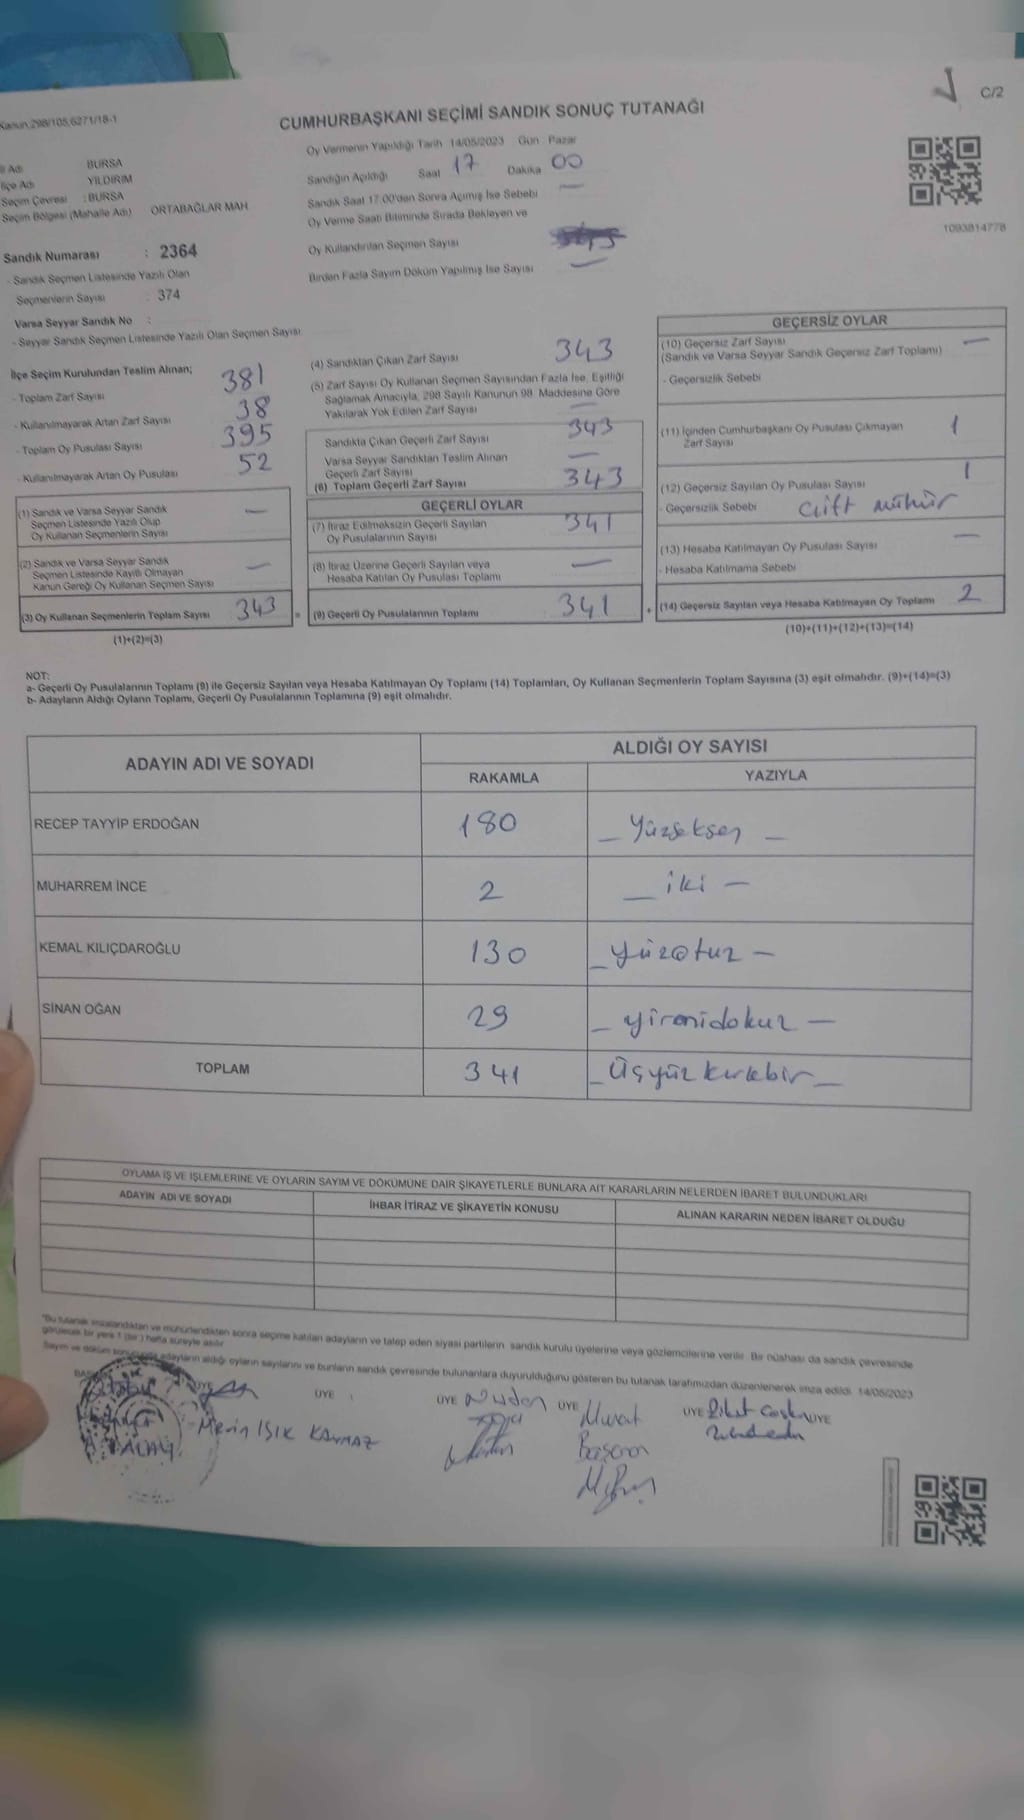 Kanun:298/105,6271/18-1
C/2
CUMHURBAŞKANI SEÇİMİ SANDIK SONUÇ TUTANAĞI
İl Adı BURSA
İlçe Adı YILDIRIM
Seçim Çevresi : BURSA
Seçim Bölgesi (Mahalle Adı) ORTABAĞLAR MAH.
Oy Vermenin Yapıldığı Tarih 14/05/2023 Gün : Pazar
Sandığın Açıldığı Saat 17 Dakika 00
Sandık Saat 17.00'den Sonra Açılmış İse Sebebi —
Oy Verme Saati Bitiminde Sırada Bekleyen ve
Oy Kullandırılan Seçmen Sayısı
Birden Fazla Sayım Döküm Yapılmış İse Sayısı —
1093814778
Sandık Numarası : 2364
- Sandık Seçmen Listesinde Yazılı Olan
Seçmenlerin Sayısı : 374
Varsa Seyyar Sandık No :
- Seyyar Sandık Seçmen Listesinde Yazılı Olan Seçmen Sayısı
İlçe Seçim Kurulundan Teslim Alınan;
- Toplam Zarf Sayısı 381
- Kullanılmayarak Artan Zarf Sayısı 38
- Toplam Oy Pusulası Sayısı 395
- Kullanılmayarak Artan Oy Pusulası 52
(1) Sandık ve Varsa Seyyar Sandık
Seçmen Listesinde Yazılı Olup
Oy Kullanan Seçmenlerin Sayısı —
(2) Sandık ve Varsa Seyyar Sandık
Seçmen Listesinde Kayıtlı Olmayan
Kanun Gereği Oy Kullanan Seçmen Sayısı —
(3) Oy Kullanan Seçmenlerin Toplam Sayısı 343 =
(1)+(2)=(3)
(4) Sandıktan Çıkan Zarf Sayısı 343
(5) Zarf Sayısı Oy Kullanan Seçmen Sayısından Fazla İse, Eşitliği
Sağlamak Amacıyla, 298 Sayılı Kanunun 98. Maddesine Göre
Yakılarak Yok Edilen Zarf Sayısı —
Sandıkta Çıkan Geçerli Zarf Sayısı 343
Varsa Seyyar Sandıktan Teslim Alınan
Geçerli Zarf Sayısı —
(6) Toplam Geçerli Zarf Sayısı 343
GEÇERLİ OYLAR
(7) İtiraz Edilmeksizin Geçerli Sayılan
Oy Pusulalarının Sayısı 341
(8) İtiraz Üzerine Geçerli Sayılan veya
Hesaba Katılan Oy Pusulası Toplamı —
(9) Geçerli Oy Pusulalarının Toplamı 341 +
GEÇERSİZ OYLAR
(10) Geçersiz Zarf Sayısı —
(Sandık ve Varsa Seyyar Sandık Geçersiz Zarf Toplamı)
- Geçersizlik Sebebi
(11) İçinden Cumhurbaşkanı Oy Pusulası Çıkmayan
Zarf Sayısı 1
(12) Geçersiz Sayılan Oy Pusulası Sayısı 1
- Geçersizlik Sebebi çift mühür
(13) Hesaba Katılmayan Oy Pusulası Sayısı —
- Hesaba Katılmama Sebebi
(14) Geçersiz Sayılan veya Hesaba Katılmayan Oy Toplamı 2
(10)+(11)+(12)+(13)=(14)
NOT:
a- Geçerli Oy Pusulalarının Toplamı (9) ile Geçersiz Sayılan veya Hesaba Katılmayan Oy Toplamı (14) Toplamları, Oy Kullanan Seçmenlerin Toplam Sayısına (3) eşit olmalıdır. (9)+(14)=(3)
b- Adayların Aldığı Oyların Toplamı, Geçerli Oy Pusulalarının Toplamına (9) eşit olmalıdır.
ADAYIN ADI VE SOYADI
ALDIĞI OY SAYISI
RAKAMLA YAZIYLA
RECEP TAYYİP ERDOĞAN 180 — Yüzseksen —
MUHARREM İNCE 2 — iki —
KEMAL KILIÇDAROĞLU 130 — yüzotuz —
SİNAN OĞAN 29 — yirmidokuz —
TOPLAM 341 — Üçyüzkırkbir —
OYLAMA İŞ VE İŞLEMLERİNE VE OYLARIN SAYIM VE DÖKÜMÜNE DAİR ŞİKAYETLERLE BUNLARA AİT KARARLARIN NELERDEN İBARET BULUNDUKLARI
ADAYIN ADI VE SOYADI İHBAR İTİRAZ VE ŞİKAYETİN KONUSU ALINAN KARARIN NEDEN İBARET OLDUĞU
"Bu tutanak imzalandıktan ve mühürlendikten sonra seçime katılan adayların ve talep eden siyasi partilerin sandık kurulu üyelerine veya gözlemcilerine verilir. Bir nüshası da sandık çevresinde
görülecek bir yere 1 (bir) hafta süreyle asılır.
Sayım ve döküm sonucunda adayların aldığı oyların sayılarını ve bunların sandık çevresinde bulunanlara duyurulduğunu gösteren bu tutanak tarafımızdan düzenlenerek imza edildi. 14/05/2023
ÜYE ÜYE ÜYE ÜYE ÜYE ÜYE
Merin IŞIK KAYMAZ
Murat
Başaran